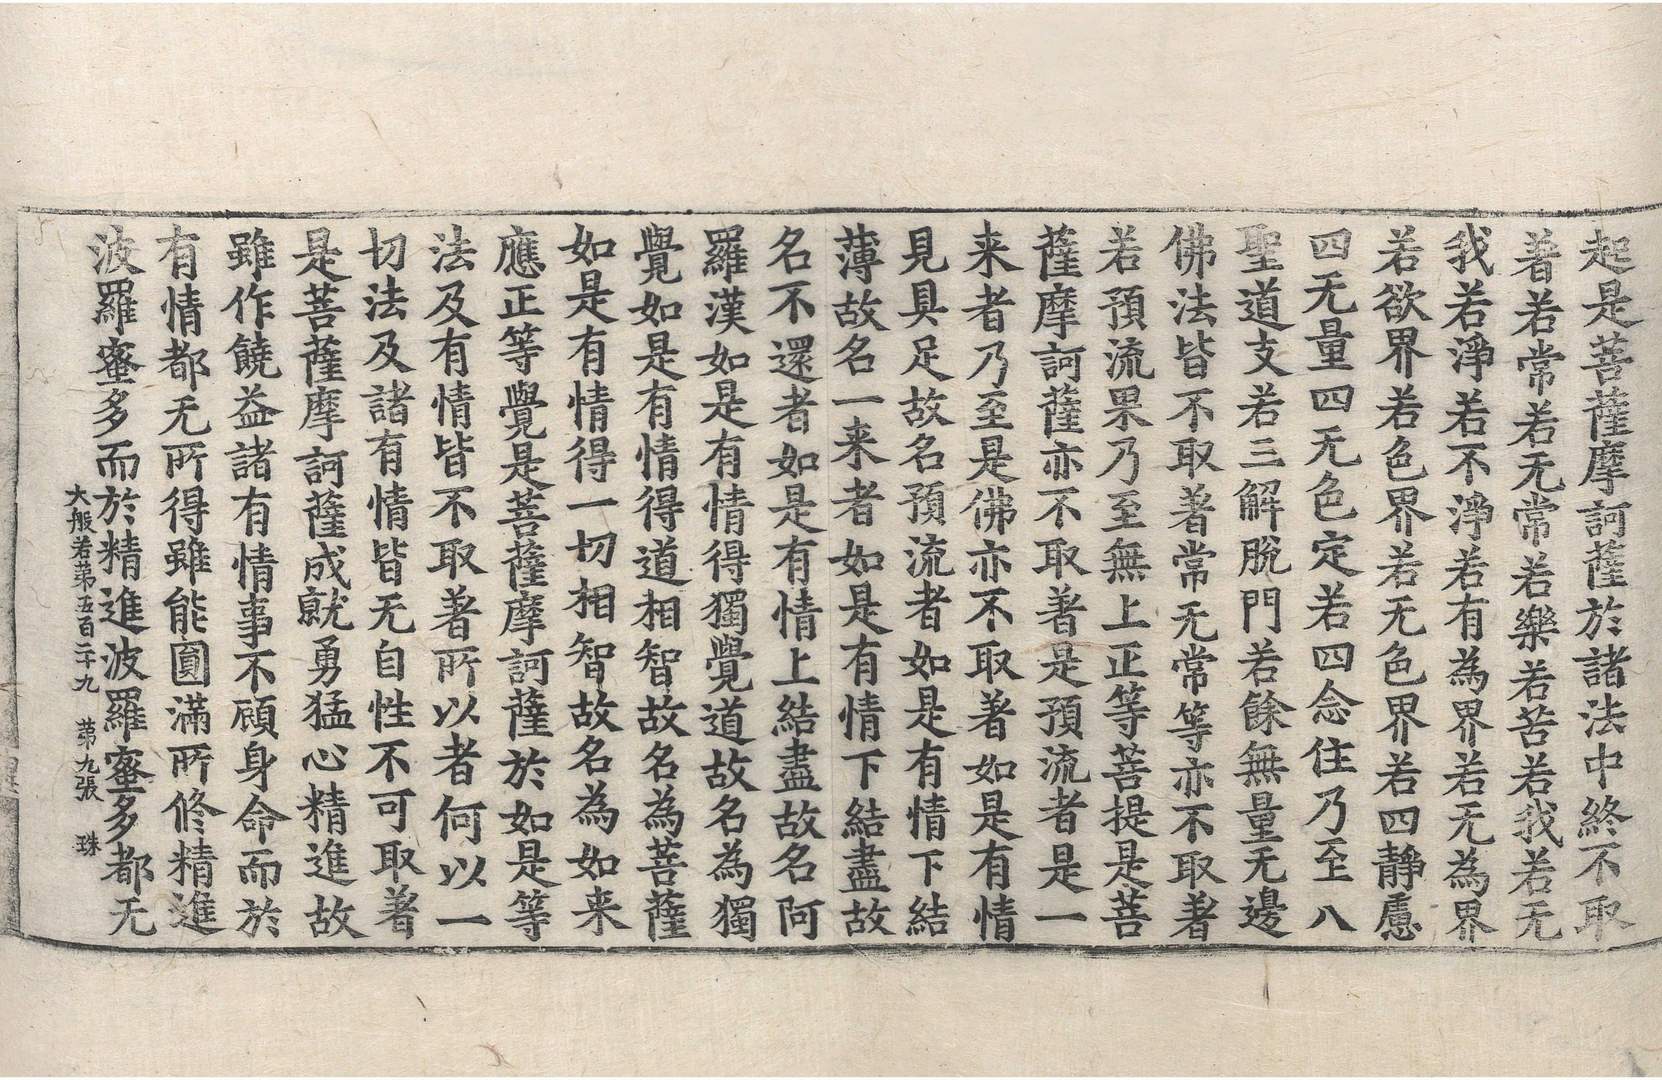 起是菩薩摩訶薩於諸法中終不取
著若常若无常若樂若苦若我若无
我若淨若不淨若有為界若无為界
若欲界若色界若无色界若四靜慮
四无量四无色定若四念住乃至八
聖道支若三解脫門若餘無量无邊
佛法皆不取著常无常等亦不取著
若預流果乃至無上正等菩提是菩
薩摩訶薩亦不取著是預流者是一
来者乃至是佛亦不取著如是有情
見具足故名預流者如是有情下結
薄故名一来者如是有情下結盡故
名不還者如是有情上結盡故名阿
羅漢如是有情得獨覺道故名為獨
覺如是有情得道相智故名為菩薩
如是有情得一切相智故名為如来
應正等覺是菩薩摩訶薩於如是等
法及有情皆不取著所以者何以一
切法及諸有情皆无自性不可取著
是菩薩摩訶薩成就勇猛心精進故
雖作饒益諸有情事不顧身命而於
有情都无所得雖能圓滿所修精進
波羅蜜多而於精進波羅蜜多都无
大般若苐五百二十九 苐九張 珠